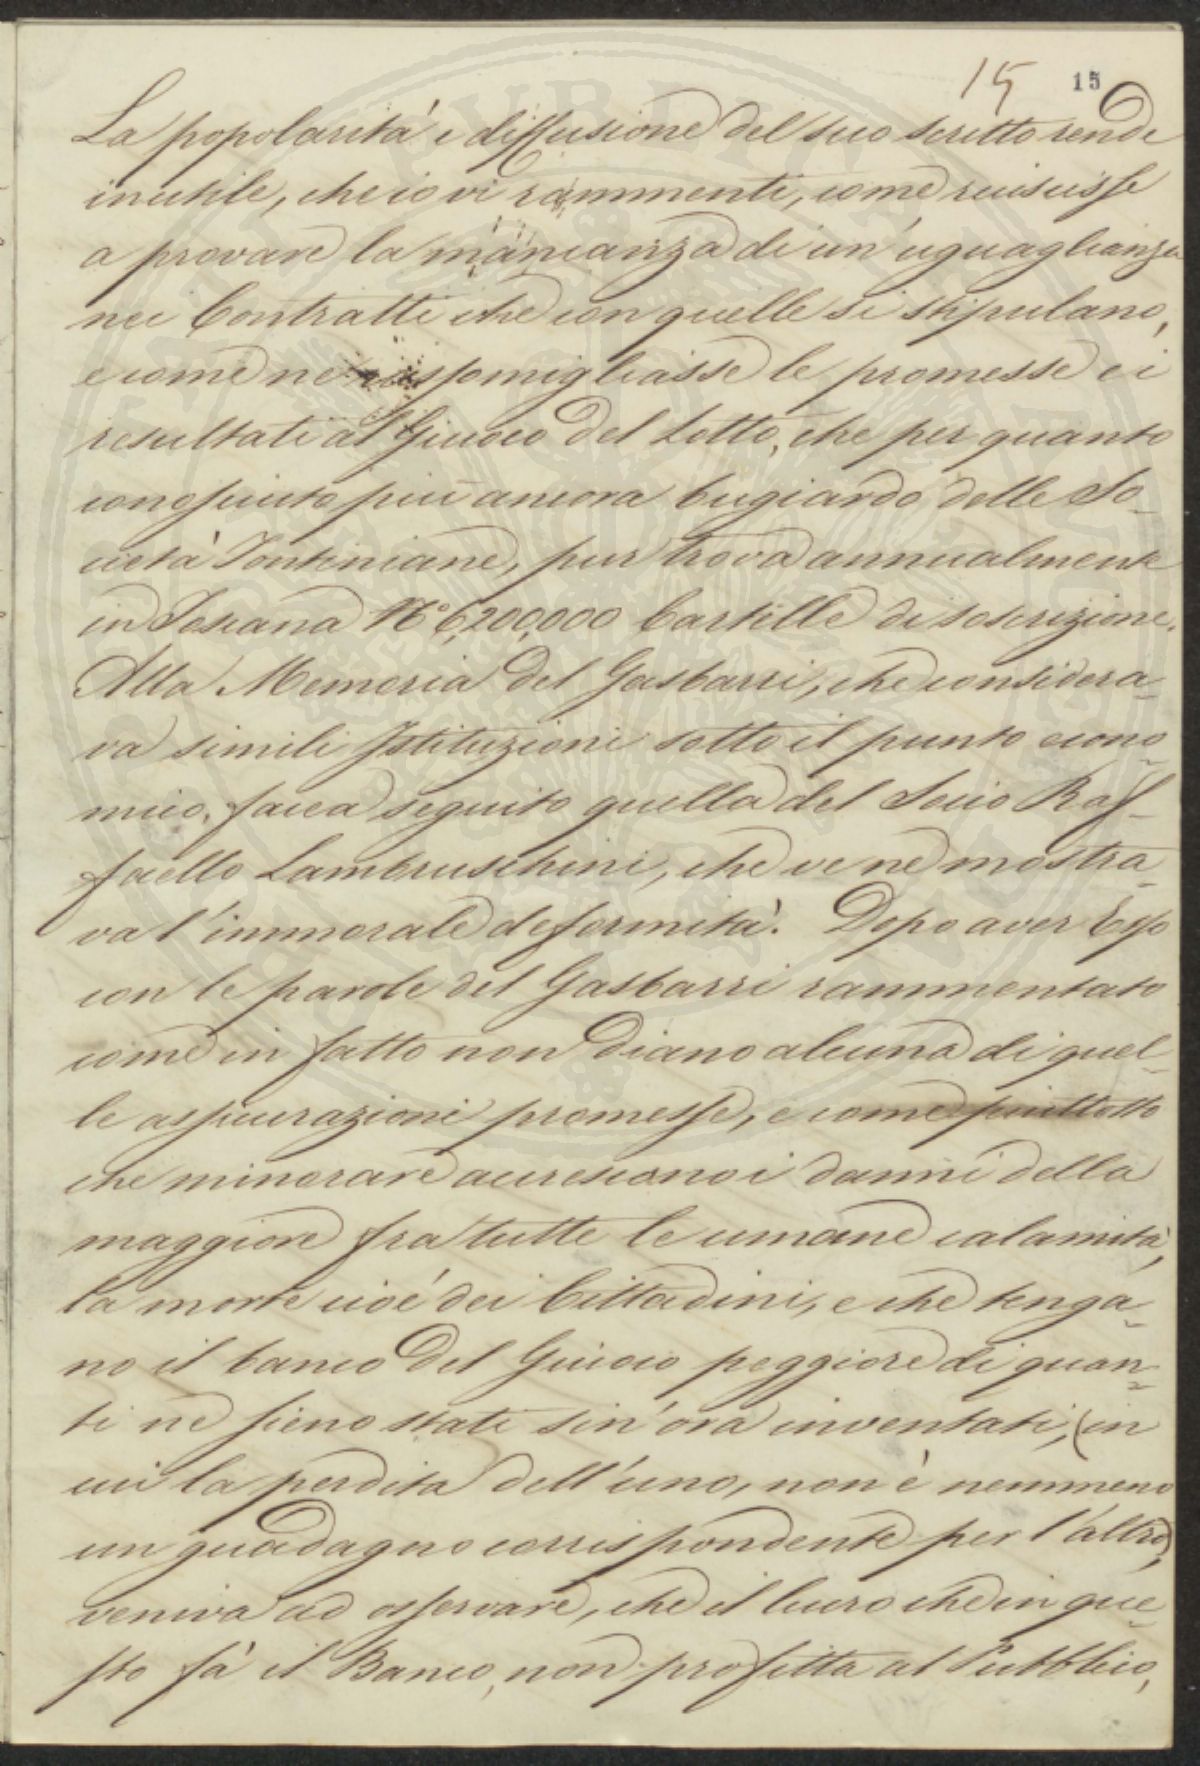 15 15
La popolarità e diffusione del suo scritto rende
inutile, che io vi rammenti, come reiuscisse
a provare la mancanza di un' uguaglianza
nei Contratti che con quelle si stipulano,
e come ne rassomigliasse le promesse e i
resultati al Giuoco del Lotto, che per quanto
conosciuto più ancora bugiardo delle So-
cietà Tontiniane, pur trova annualmente
in Toscana N.° 6,200,000 Cartelle di soscrizione.
Alla Memoria del Gasbarri, che considera-
va simili Istituzioni sotto il punto econo-
mico, facea seguito quella del Socio Raf-
faello Lambruschini, che ve ne mostra-
va l'immorale deformità. Dopo aver Esso
con le parole del Gasbarri rammentato
come in fatto non diano alcuna di quel-
le assicurazioni promesse, e come piuttosto
che minorare accrescano i danni della
maggiore fra tutte le umane calamità,
la morte cioè dei Cittadini, e che tenga-
no il banco del Giuoco peggiore di quan-
ti ne sieno stati sin' ora inventati, (in
cui la perdita dell'uno, non è nemmeno
un guadagno corrispondente per l'altro),
veniva ad osservare, che il lucro che in que-
sto fà il Banco, non profitta al Pubblico,